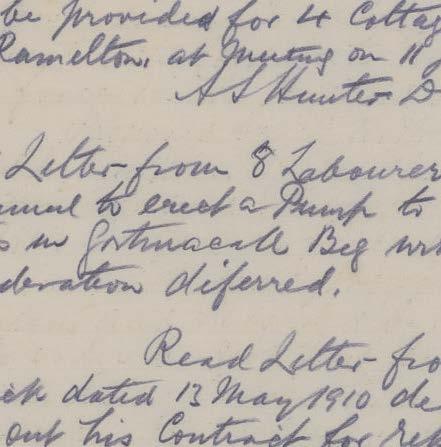 be provided for 4 Cottag
Ramelton, at Meeting on 11
A S Hunter D
Letter from 8 Labourer
to erect a Pump to
s in Gortmacall Beg
deration diferred.
Read Letter fro
ick dated 13 May 1910 de
out his Contract for